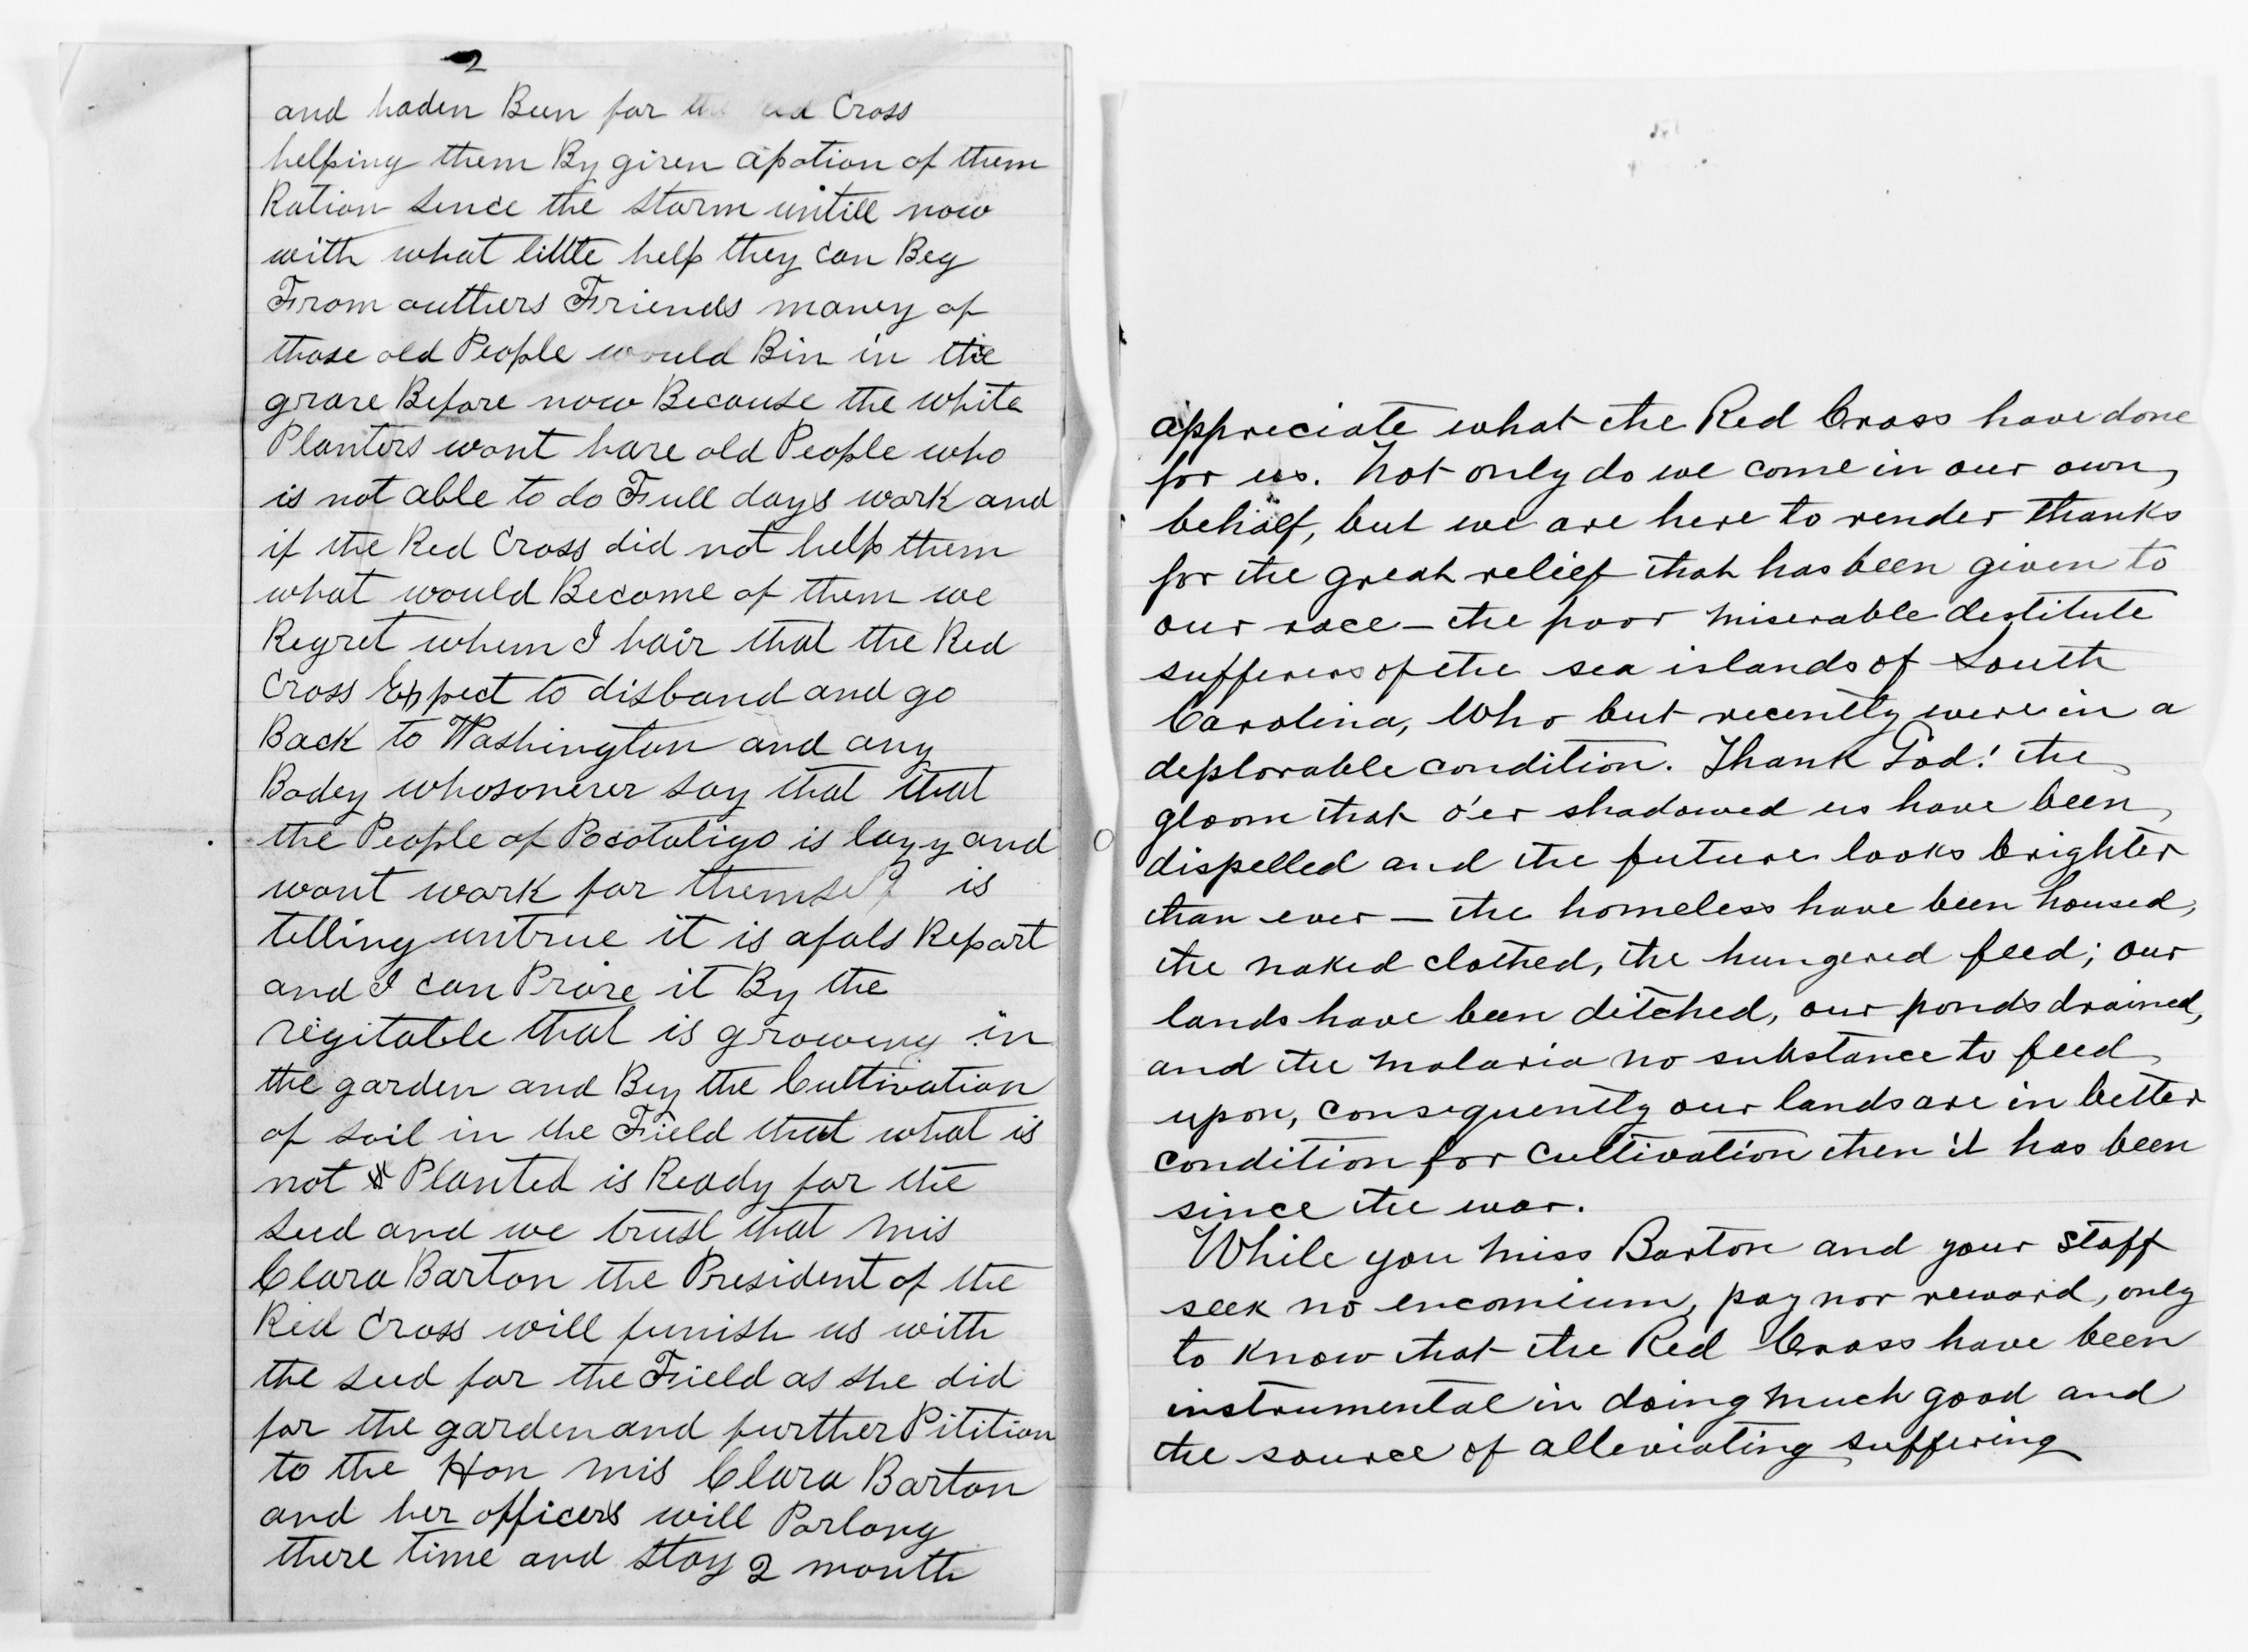 2
and haden Been for the Red Cross
helping them By given apotion of them
Ration Sence the Storm untill now
with what little help they can Beg
From outhers Friends maney of
those old People would Bin in the
grave Before now Because the white
Planters wont have old People who
is not able to do Full days work and
if the Red Cross did not help them
what would Become of them we
Regret when I hair that the Red
Cross Expect to disband and go
Back to Washington and any
Bodey whosonever say that that
the People of Pocotaligo is lazy and
wont work for themself is
telling untrue it is afals Report
and I can Prove it By the
vegitable that is groweng in
the garden and Bey the Cultivation
of soil in the Field that what is
not Planted is Ready for the
seed and we trust that mis
Clara Barton the President of the
Red Cross will funish us with
the seed for the Field as she did
for the garden and further Pitition
to the Hon mis Clara Barton
and her officers will Parlong
there time and stay 2 month
appreciate what the Red Cross have done
for us. Not only do we come in our own
behalf, but we are here to render thanks
for the great relief that has been given to
our race — the poor miserable destitute
sufferers of the sea islands of South
Carolina, Who but recently were in a
deplorable condition. Thank God! the
gloom that o'er shadowed us have been
dispelled and the future looks brighter
than ever — the homeless have been housed,
the naked clothed, the hungered feed; our
lands have been ditched, our ponds drained,
and the malaria no substance to feed
upon, consequently our lands are in better
condition for cultivation then it has been
since the war.
While you Miss Barton and your staff
seek no encomium, pay nor reward, only
to know that the Red Cross have been
instrumental in doing much good and
the source of alleviating suffering